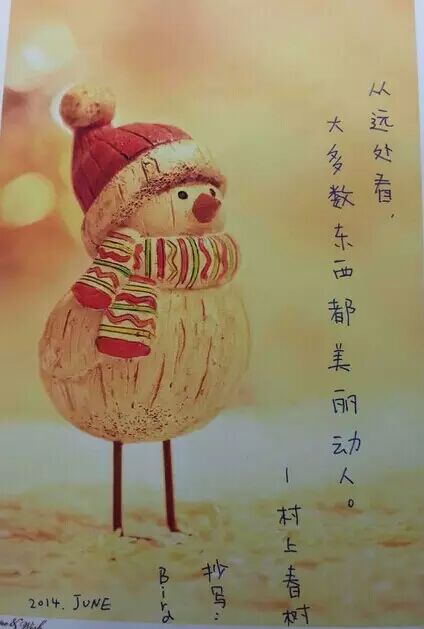 从远处看，
大多数东西都美丽动人。
—村上春树
抄写：
Bird
2014. JUNE